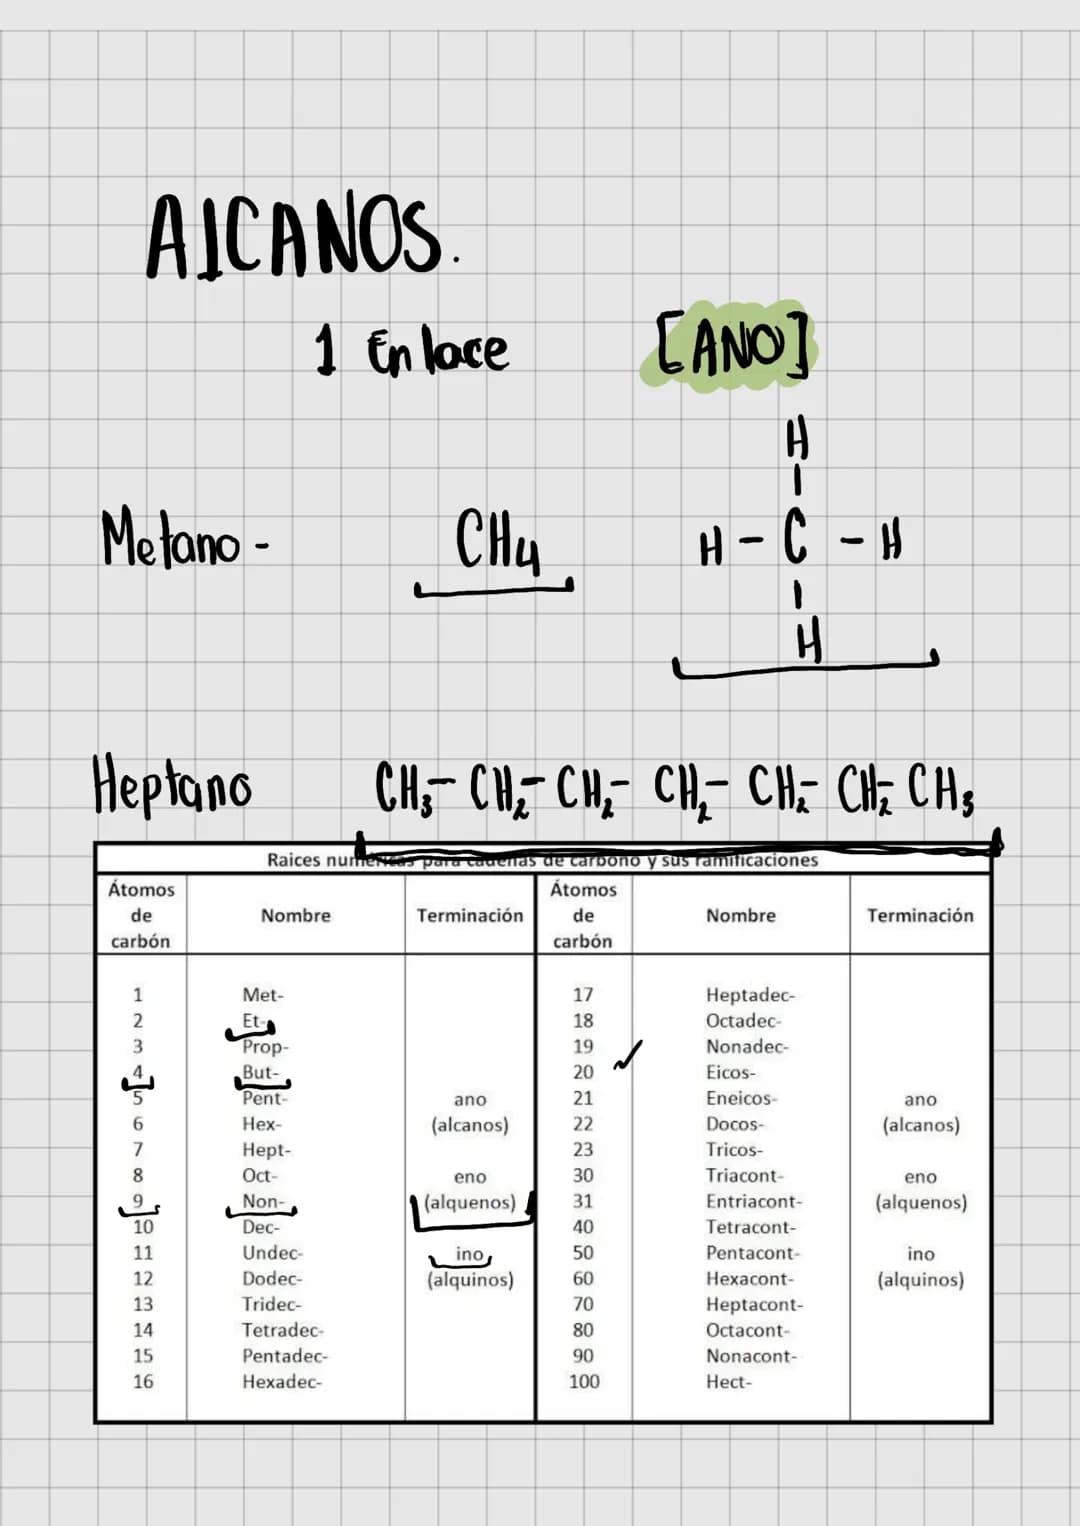 AlCANOS.
1 Enlace [ANO]
H
Metano - CH4 H - C - H
H
Heptano CH3- CH2- CH2- CH2- CH2- CH2- CH3
Raices numéricas para cadenas de carbono y sus ramificaciones
Átomos de carbón Nombre Terminación Átomos de carbón Nombre Terminación
1 Met- 17 Heptadec-
2 Et- 18 Octadec-
3 Prop- 19 Nonadec-
4 But- 20 Eicos-
5 Pent- ano 21 Eneicos- ano
6 Hex- (alcanos) 22 Docos- (alcanos)
7 Hept- 23 Tricos-
8 Oct- eno 30 Triacont- eno
9 Non- (alquenos) 31 Entriacont- (alquenos)
10 Dec- 40 Tetracont-
11 Undec- ino 50 Pentacont- ino
12 Dodec- (alquinos) 60 Hexacont- (alquinos)
13 Tridec- 70 Heptacont-
14 Tetradec- 80 Octacont-
15 Pentadec- 90 Nonacont-
16 Hexadec- 100 Hect-